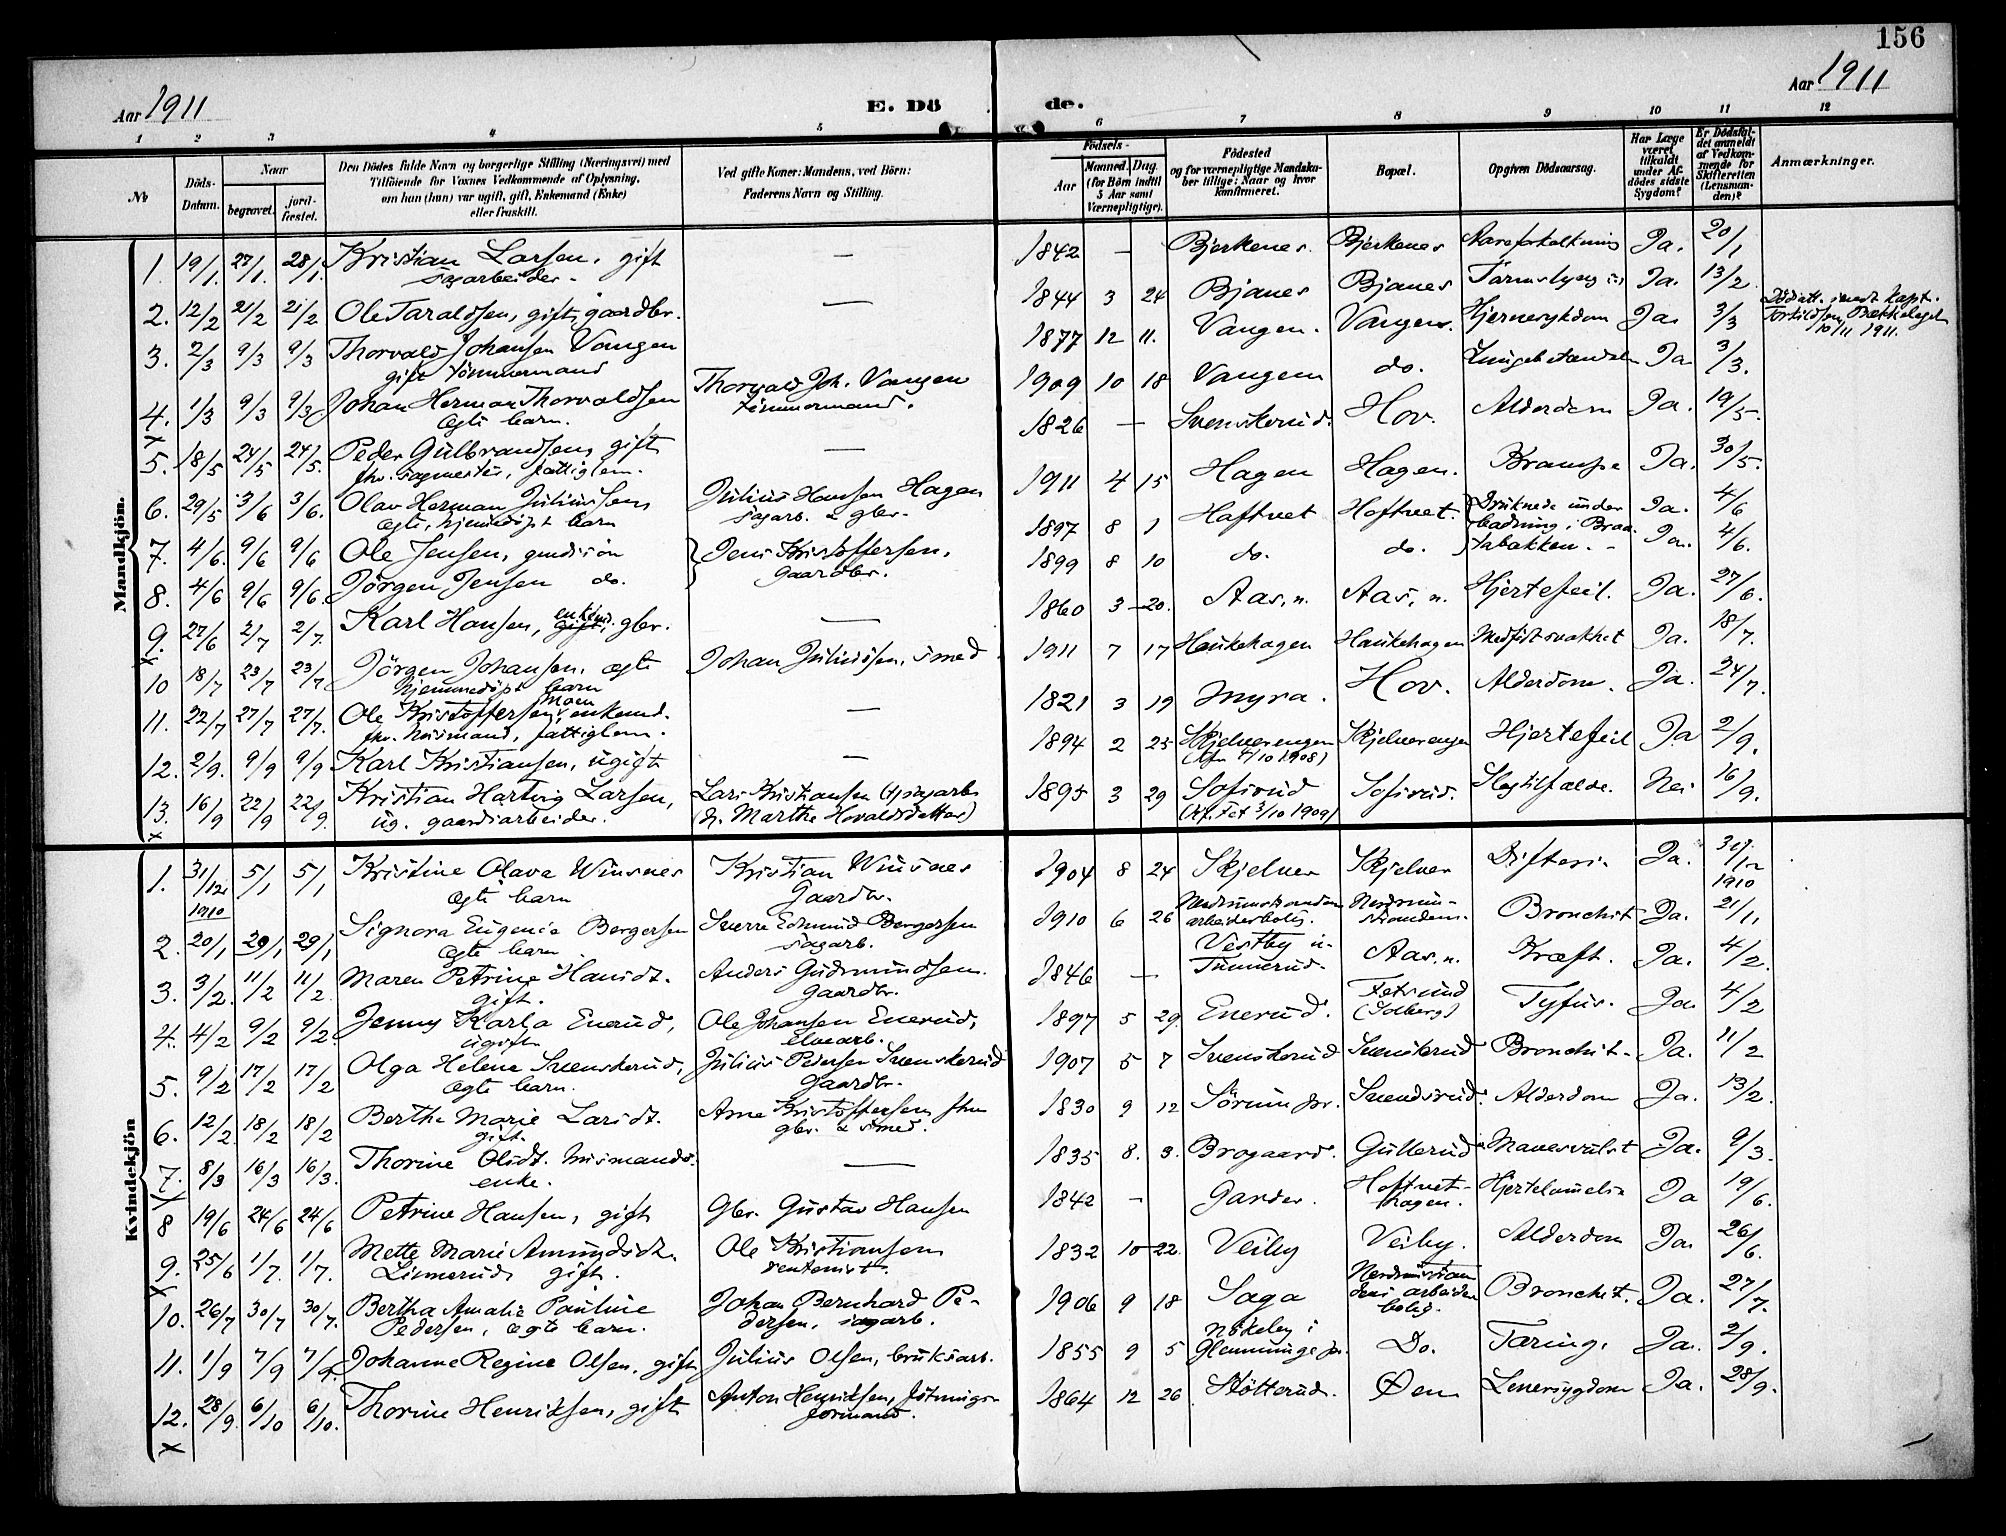 156
Aar 1911
E. Dö
de.
Aar 1911
1 2 3 4 5 6 7 8 9 10 11 12
№
Döds-
Datum.
Naar
begravet.
jord-
fæstet.
Den Dödes fulde Navn og borgerlige Stilling (Næringsvei) med
Tilföiende for Voxnes Vedkommende af Oplysning,
om han (hun) var ugift, gift, Enkemand (Enke)
eller fraskilt.
Ved gifte Koner: Mandens, ved Börn:
Faderens Navn og Stilling.
Födsels-
Aar
Maaned. Dag.
(for Börn indtil
5 Aar samt
Værnepligtige).
Födested
og for værnepligtige Mandska-
ber tillige: Naar og hvor
konfirmeret.
Bopæl.
Opgiven Dödsaarsag.
Har Læge
været
tilkaldt
under Af-
dödes sidste
Sygdom?
Er Dödsfal-
det anmeldt
af Vedkom-
mende for
Skifteretten
(Lensman-
den)?
Anmærkninger.
Mandkjön.
1. 19/1. 27/1. 28/1. Kristian Larsen, gift — 1842 — Bjerkenes. Bjerkenes Ja. 20/1
sagarbeider.
2. 12/2 21/2 21/2 Ole Taraldsen, gift, gaardbr. — 1844 3 24 Bjanes Bjanes Ja. 13/2
3. 2/3 9/3 9/3 Thorvald Johansen Vangen 1877 12 11. Vangen. Vangen. Hjernesygdom Ja 3/3
gift tömmermand
10/11 1911.
4. 1/3 9/3 9/3 Johan Herman Thorvaldsen Thorvald Joh. Vangen 1909 10 18 Vangen do. Ja 3/3.
ægte barn. tömmermand.
5. 18/5 24/5 24/5. Peder Gulbrandsen, gift — 1826 — Svenskerud. Hov. Alderdom Ja. 19/5.
fhv. sagmester, fattiglem.
6. 29/5 3/6 3/6. Olav Herman Juliussen Julius Hansen Hagen 1911 4 15 Hagen Hagen. Krampe Ja. 30/5.
ægte, hjemmedöpt barn sagarb. & gbr.
7. 4/6. 9/6 9/6 Ole Jensen, gaardssön Jens Kristoffersen, 1897 8 1 Haftvet Hoftvet. Druknede under Ja. 4/6
gaardbr. badning i
8. 4/6 9/6 9/6. Jörgen Jensen do. 1899 8 10 do. do. Ja. 4/6.
9. 27/6 2/7 2/7. Karl Hansen, enkem. gift, gbr. — 1860 3 20. Aas, n. Aas, n. Hjertefeil. Ja. 27/6.
10 18/7 23/7 23/7 Jörgen Johansen, ægte Johan Juliussen, smed 1911 7 17 Haukehagen Haukehagen Medfödt svakhet Ja. 18/7.
hjemmedöpt barn
11. 22/7 27/7 27/7. Ole Kristoffersen Moen, enkemd. — 1821 3 19 Myra. Hov. Alderdom. Ja. 24/7.
fhv. husmand, fattiglem.
12. 2/9. 9/9 9/9 Karl Kristiansen, ugift — 1894 2 25 Skjelverengen Skjelverengen Hjertefeil Ja 2/9.
(Kfm 4/10 1908)
13. 16/9 22/9 22/9. Kristian Hartvig Larsen, Lars Kristiansen (†) sagarb. 1895 3 29 Sofirud Sofirud. Slagtilfælde. Nei 16/9.
ug. gaardsarbeider. (h. Marthe Hovaldsdatter) (Kf. Fet 3/10 1909)
Kvindekjön
1. 31/12 1910 5/1 5/1 Kristine Olava Winsnes Kristian Winsnes 1904 8 24 Skjelver Skjelver Difteri Ja. 31/12 1910
ægte barn Gaardbr.
2. 20/1 29/1 29/1 Signora Eugenie Bergersen Sverre Edmund Bergersen 1910 6 26 Nerdrumstranden Nerdrum- Bronchit Ja. 21/1.
ægte barn sagarb. arbeiderbolig. stranden.
3. 3/2. 11/2 11/2. Maren Petrine Hansdt. Anders Gudmundsen. 1846 — Vestby u. Aas, n. Kræft. Ja. 4/2.
gift. gaardbr. Tunnerud.
4. 4/2 9/2 9/2. Jenny Karla Enerud, Ole Johansen Enerud, 1897 5 29. Enerud. Fetsund Tyfus. Ja 4/2
ugift elvearb. (Solberg)
5. 9/2 17/2 17/2 Olga Helene Svenskerud, Julius Pedersen Svenskerud 1907 5 7 Svenskerud Svenskerud Bronchit. Ja. 11/2
ægte barn. gaardbr.
6. 12/2 18/2 18/2 Berthe Marie Larsdt. Arne Kristoffersen fhv 1830 9 12 Sörum pr. Svendsrud. Alderdom Ja. 13/2.
gift. gbr. & smed.
7. 8/3 16/3 16/3. Thorine Olsdt. husmands. — 1835 8. 3. Brogaard. Gullerud Mavesvulst Ja. 9/3.
enke.
8 19/6 24/6 24/6 Petrine Hansen, gift Gbr. Gustav Hansen 1842 — Garder. Hoftvet- Hjertelamelse Ja 19/6.
hagen.
9. 25/6 1/7. 1/7. Mette Marie Amundsdt. Ole Kristiansen 1832 10 22. Veiby Veiby. Alderdom Ja 26/6.
Linnerud gift. rentenist.
10. 26/7 30/7 30/7. Bertha Amalie Pauline Johan Bernhard Pe- 1906 9 18 Saga Nerdrumstran Bronchit. Ja. 27/7.
Pedersen, ægte barn. dersen, sagarb. dens arbeider
bolig.
11. 1/9 7/9 7/9. Johanne Regine Olsen, gift Julius Olsen, bruksarb. 1855 9 5 Nökleby i Do. Tæring. Ja. 2/9.
Glemminge pr.
12. 28/9. 6/10 6/10. Thorine Henriksen, gift Anton Henriksen, fötnings- 1864 12 26 Stötterud. Öen Leversygdom Ja. 28/9.
formand.